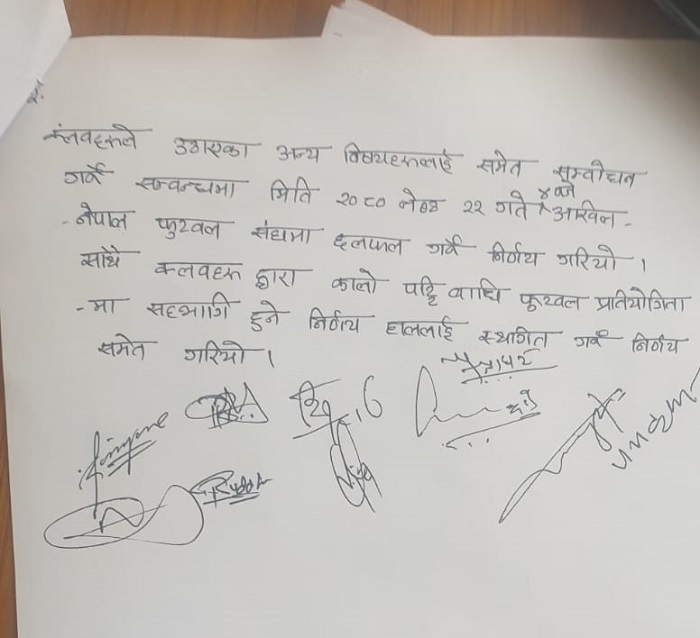 २.
क्लवहरुले उठाएका अन्य विषयहरुलाई समेत सम्वोधन
गर्ने सम्वन्धमा मिति २०८० जेष्ठ २२ गते ४ बजे अखिल -
- नेपाल फुटवल संघमा छलफल गर्ने निर्णय गरियो ।
साथै क्लवहरु द्वारा कालो पट्टि वाधि फुटवल प्रतियोगिता
- मा सहभागि हुने निर्णय हाललाई स्थगित गर्ने निर्णय
समेत गरियो ।